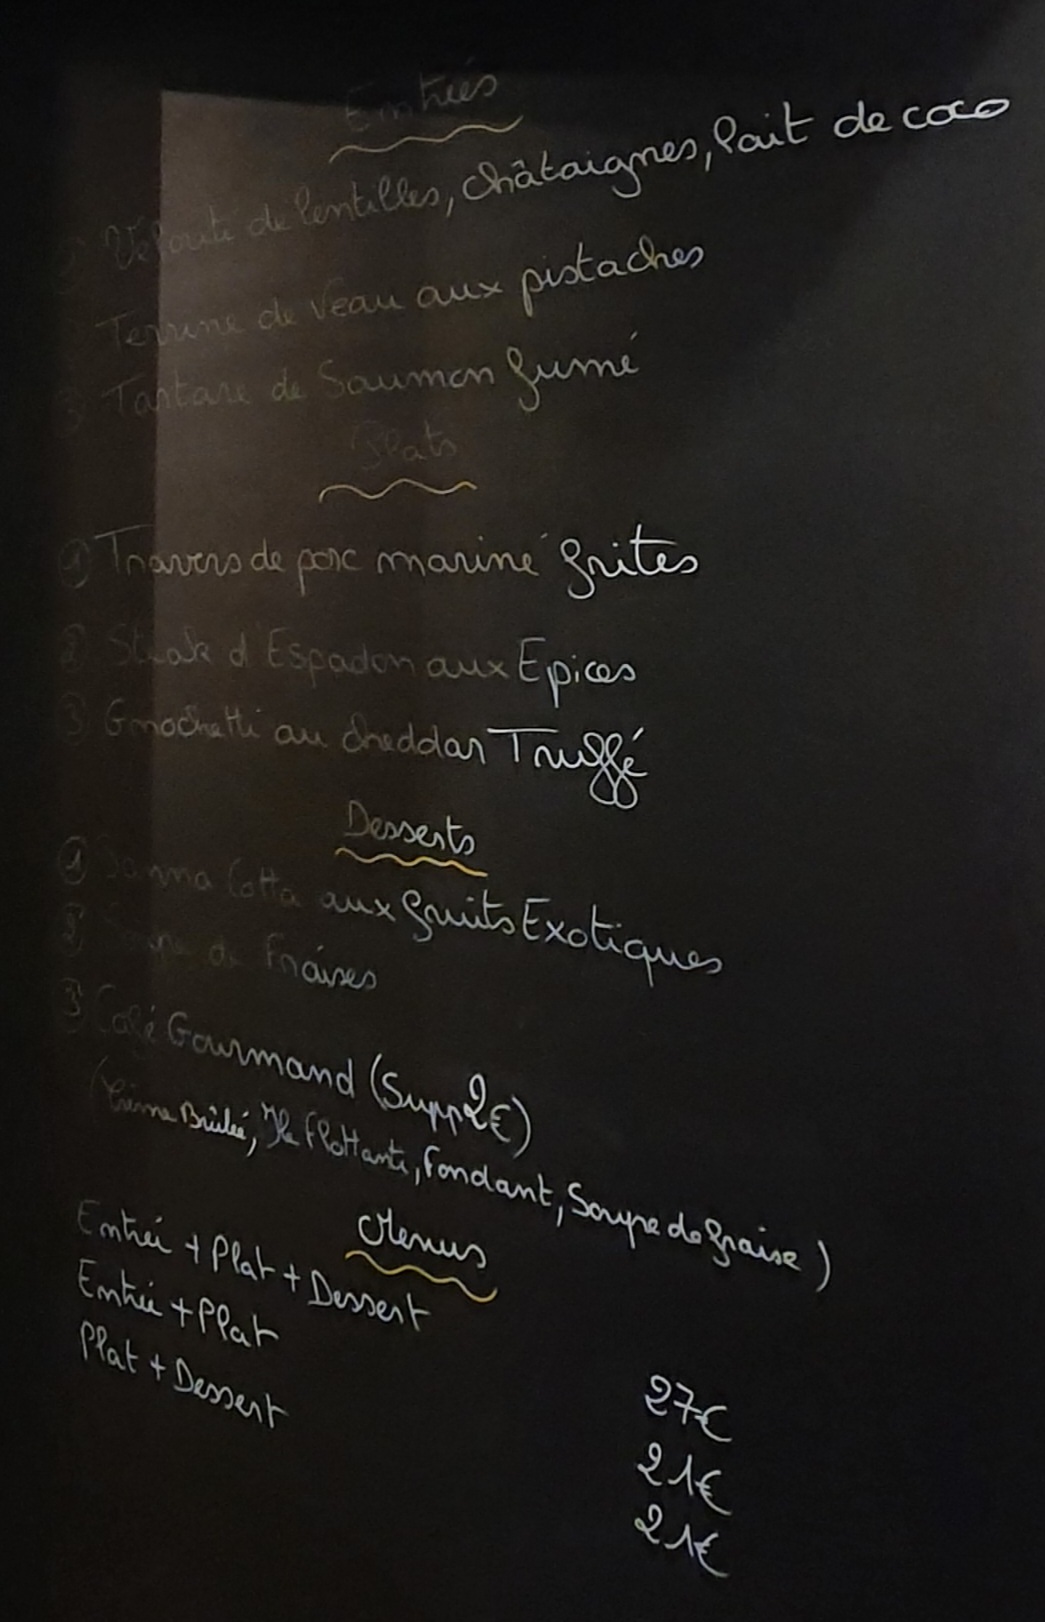 Entrées
① Velouté de lentilles, châtaignes, lait de coco
Terrine de Veau aux pistaches
③ Tartare de Saumon fumé
Plats
① Travers de porc mariné frites
② Steak d'Espadon aux Epices
③ Gnochetti au cheddar Truffé
Desserts
① Panna Cotta aux fruits Exotiques
② Soupe de Fraises
③ Café Gourmand (Supp 2€)
(Crème Brûlée, Ile flottante, Fondant, Soupe de fraise)
Menus
Entrée + Plat + Dessert
Entrée + Plat
Plat + Dessert
27€
21€
21€